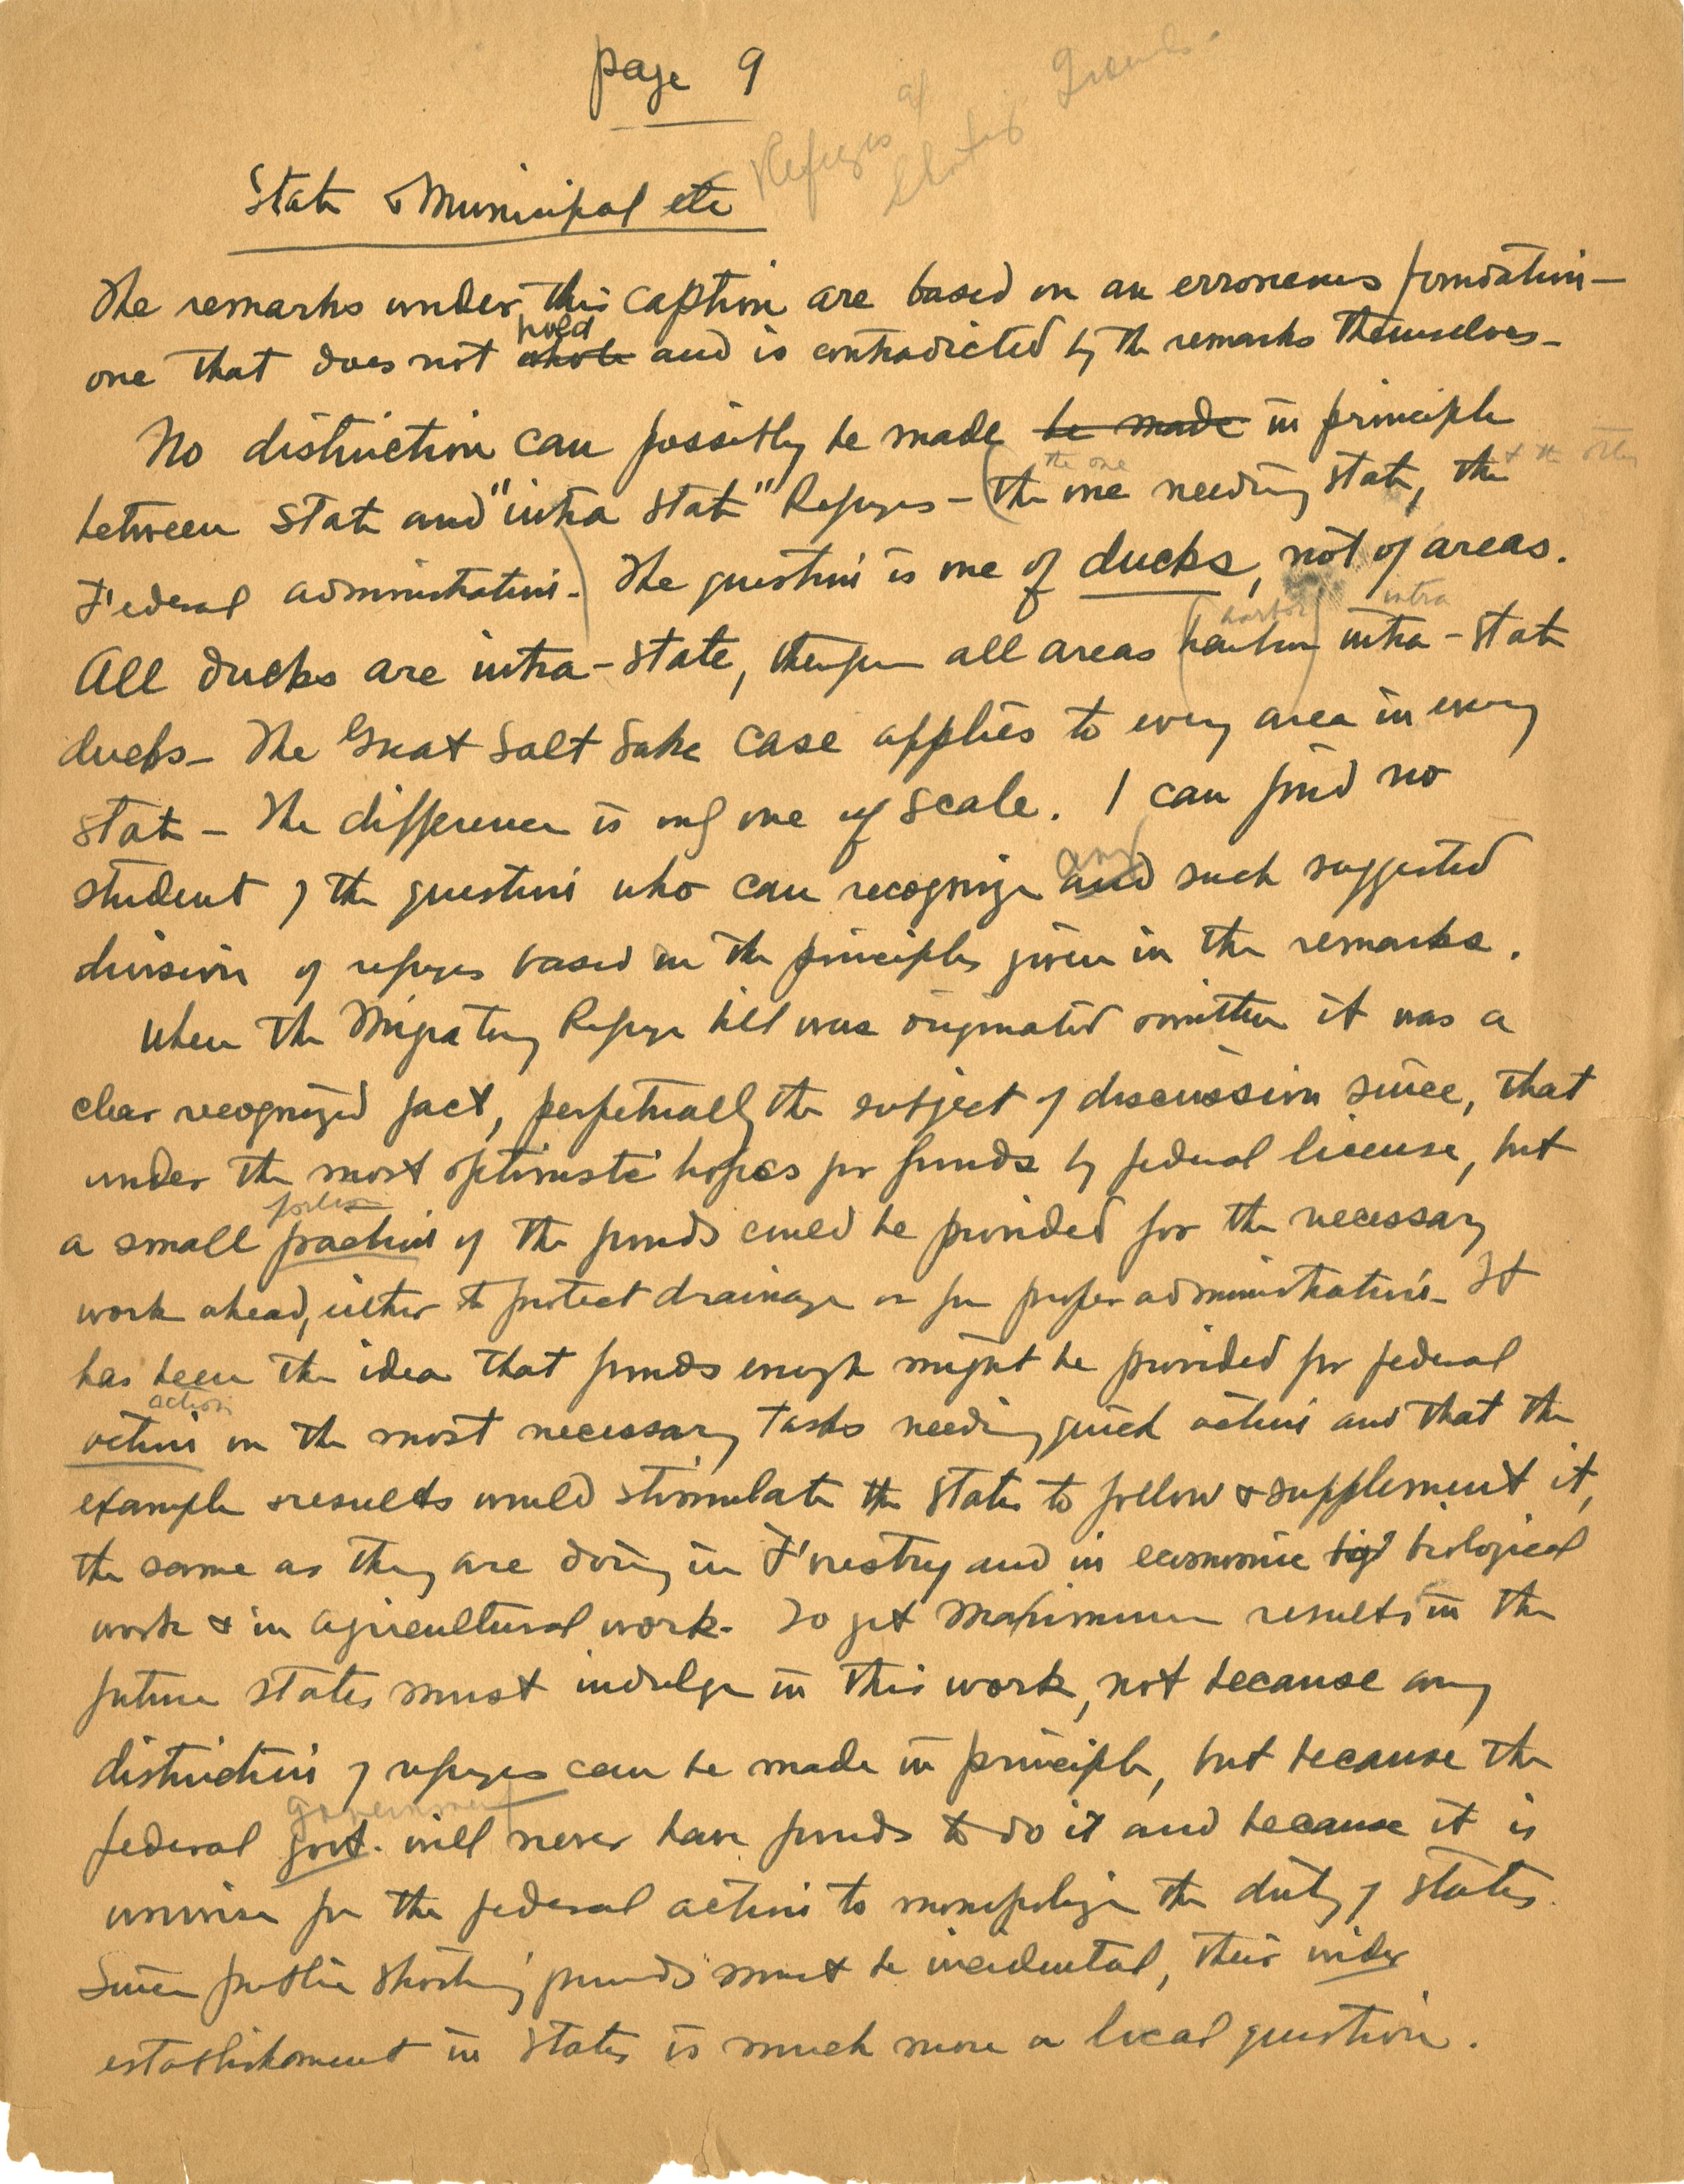 page 9
Refuges of
Shooting Grounds.
State & Municipal etc
The remarks under this caption are based on an erroneous foundation—
hold
one that does not whole and is contradicted by the remarks themselves—
No distinction can possibly be made be made in principle
the one & the other
between State and "intra State" Refuges — (the one needing State, the
Federal administration.) The question is one of ducks, not of areas.
harbor intra
All ducks are intra-state, therefore all areas (harbor) intra-state
ducks— The Great Salt Lake case applies to every area in every
state — The difference is only one of scale. I can find no
any
student of the question who can recognize and such suggested
division of refuges based on the principles given in the remarks.
When the Migratory Refuge bill was originated written it was a
clear recognized fact, perpetually the subject of discussion since, that
under the most optimistic hopes for funds by federal license, but
portion
a small fraction of the funds could be provided for the necessary
work ahead, either to protect drainage or for proper administration— It
has been the idea that funds enough might be provided for federal
action
action on the most necessary tasks needing quick action and that the
example & results would stimulate the states to follow & supplement it,
the same as they are doing in Forestry and in economic biol biological
work & in agricultural work. To get maximum results in the
future states must indulge in this work, not because any
distinction of refuges can be made in principle, but because the
government
federal govt. will never have funds to do it and because it is
unwise for the federal action to monopolize the duty of states.
Since public shooting grounds must be incidental, their wider
establishment in states is much more a local question.